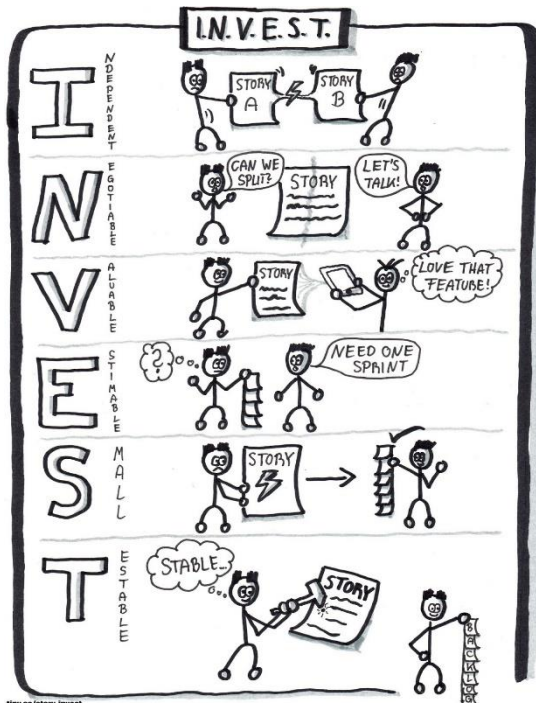 I.N.V.E.S.T.
INDEPENDENT
STORY A
STORY B
NEGOTIABLE
CAN WE SPLIT?
STORY
LET'S TALK!
VALUABLE
STORY
LOVE THAT FEATURE!
ESTIMABLE
?
NEED ONE SPRINT
SMALL
STORY
TESTABLE
STABLE...
STORY
BACKLOG